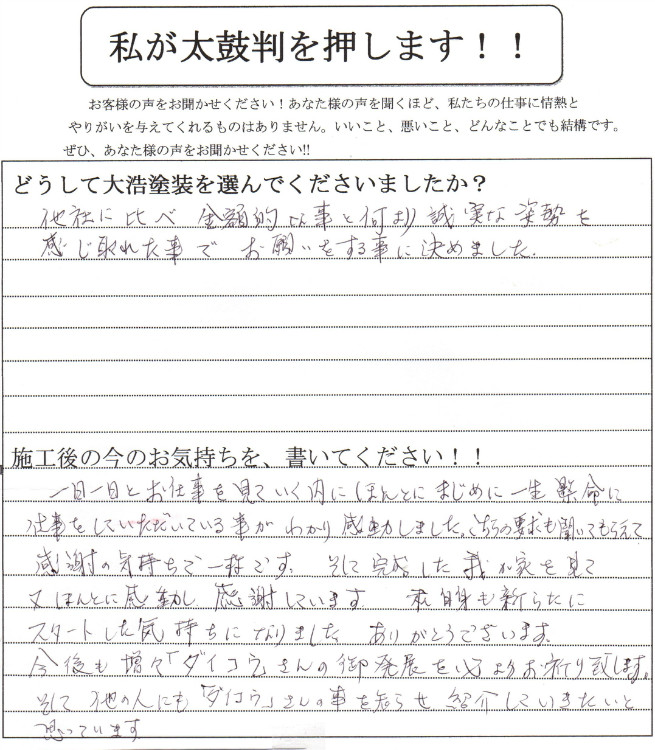 私が太鼓判を押します！！
お客様の声をお聞かせください！あなた様の声を聞くほど、私たちの仕事に情熱と
やりがいを与えてくれるものはありません。いいこと、悪いこと、どんなことでも結構です。
ぜひ、あなた様の声をお聞かせください!!
どうして大浩塗装を選んでくださいましたか？
他社に比べ 金額的な事と何より誠実な姿勢を
感じ取れた事で お願いをする事に決めました.
施工後の今のお気持ちを、書いてください！！
一日一日とお仕事を見ていく内にほんとにまじめに一生懸命に
仕事をしていただいている事がわかり感動しました。こちらの要求も聞いてもらえて
感謝の気持ちで一杯です。 そして完成した我が家を見て
又ほんとに感動し 感謝しています 私自身も新らたに
スタートした気持ちになりました ありがとうございます.
今後も増々「ダイコウ」さんの御発展を心よりお祈り致します。
そして他の人にも「ダイコウ」さんの事を知らせ紹介していきたいと
思っています